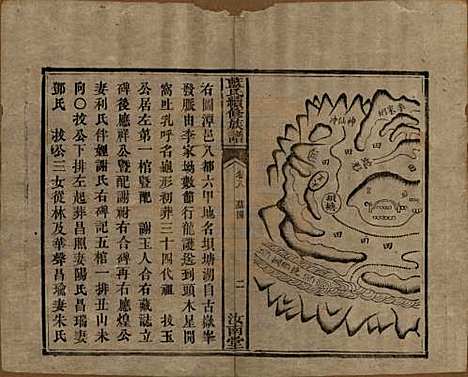 李家坳
神仙坤
田
田
田
田
田
田
壩塘
藍氏續修族譜
卷八 墓圖
二
汝南堂
右圖漳邑八都六甲地名壩塘湖自古嶽峯
發脈由李家坳數節行龍遞到頭木星開
窩吐乳呼名龜形初葬三十四代祖 拔玉
公居左第一棺暨配 謝玉人合右藏誌立
碑後應祥公暨配謝祔右合碑再右應煌公
妻利氏伴媳謝氏右碑記五棺一排丑山未
向○拔公下排左起葬昌照妻陽氏昌瑞妻
鄧氏 拔公三女從林及華聲昌瑜妻朱氏